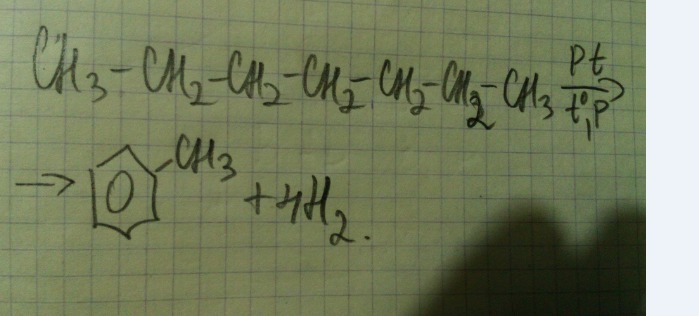 CH3-CH2-CH2-CH2-CH2-CH2-CH3 Pt t°,P →
→ CH3 + 4H2.